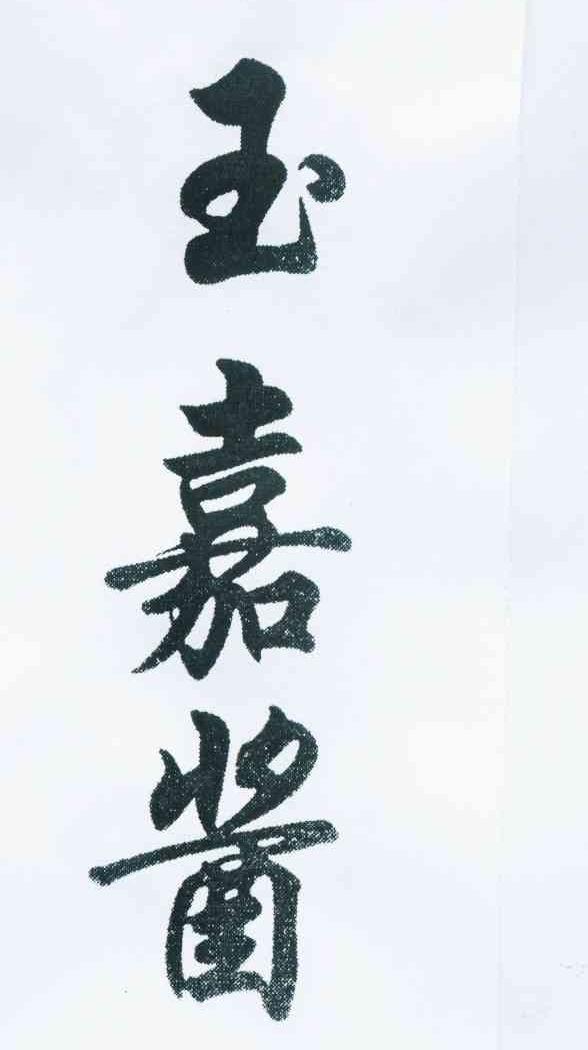 玉嘉酱